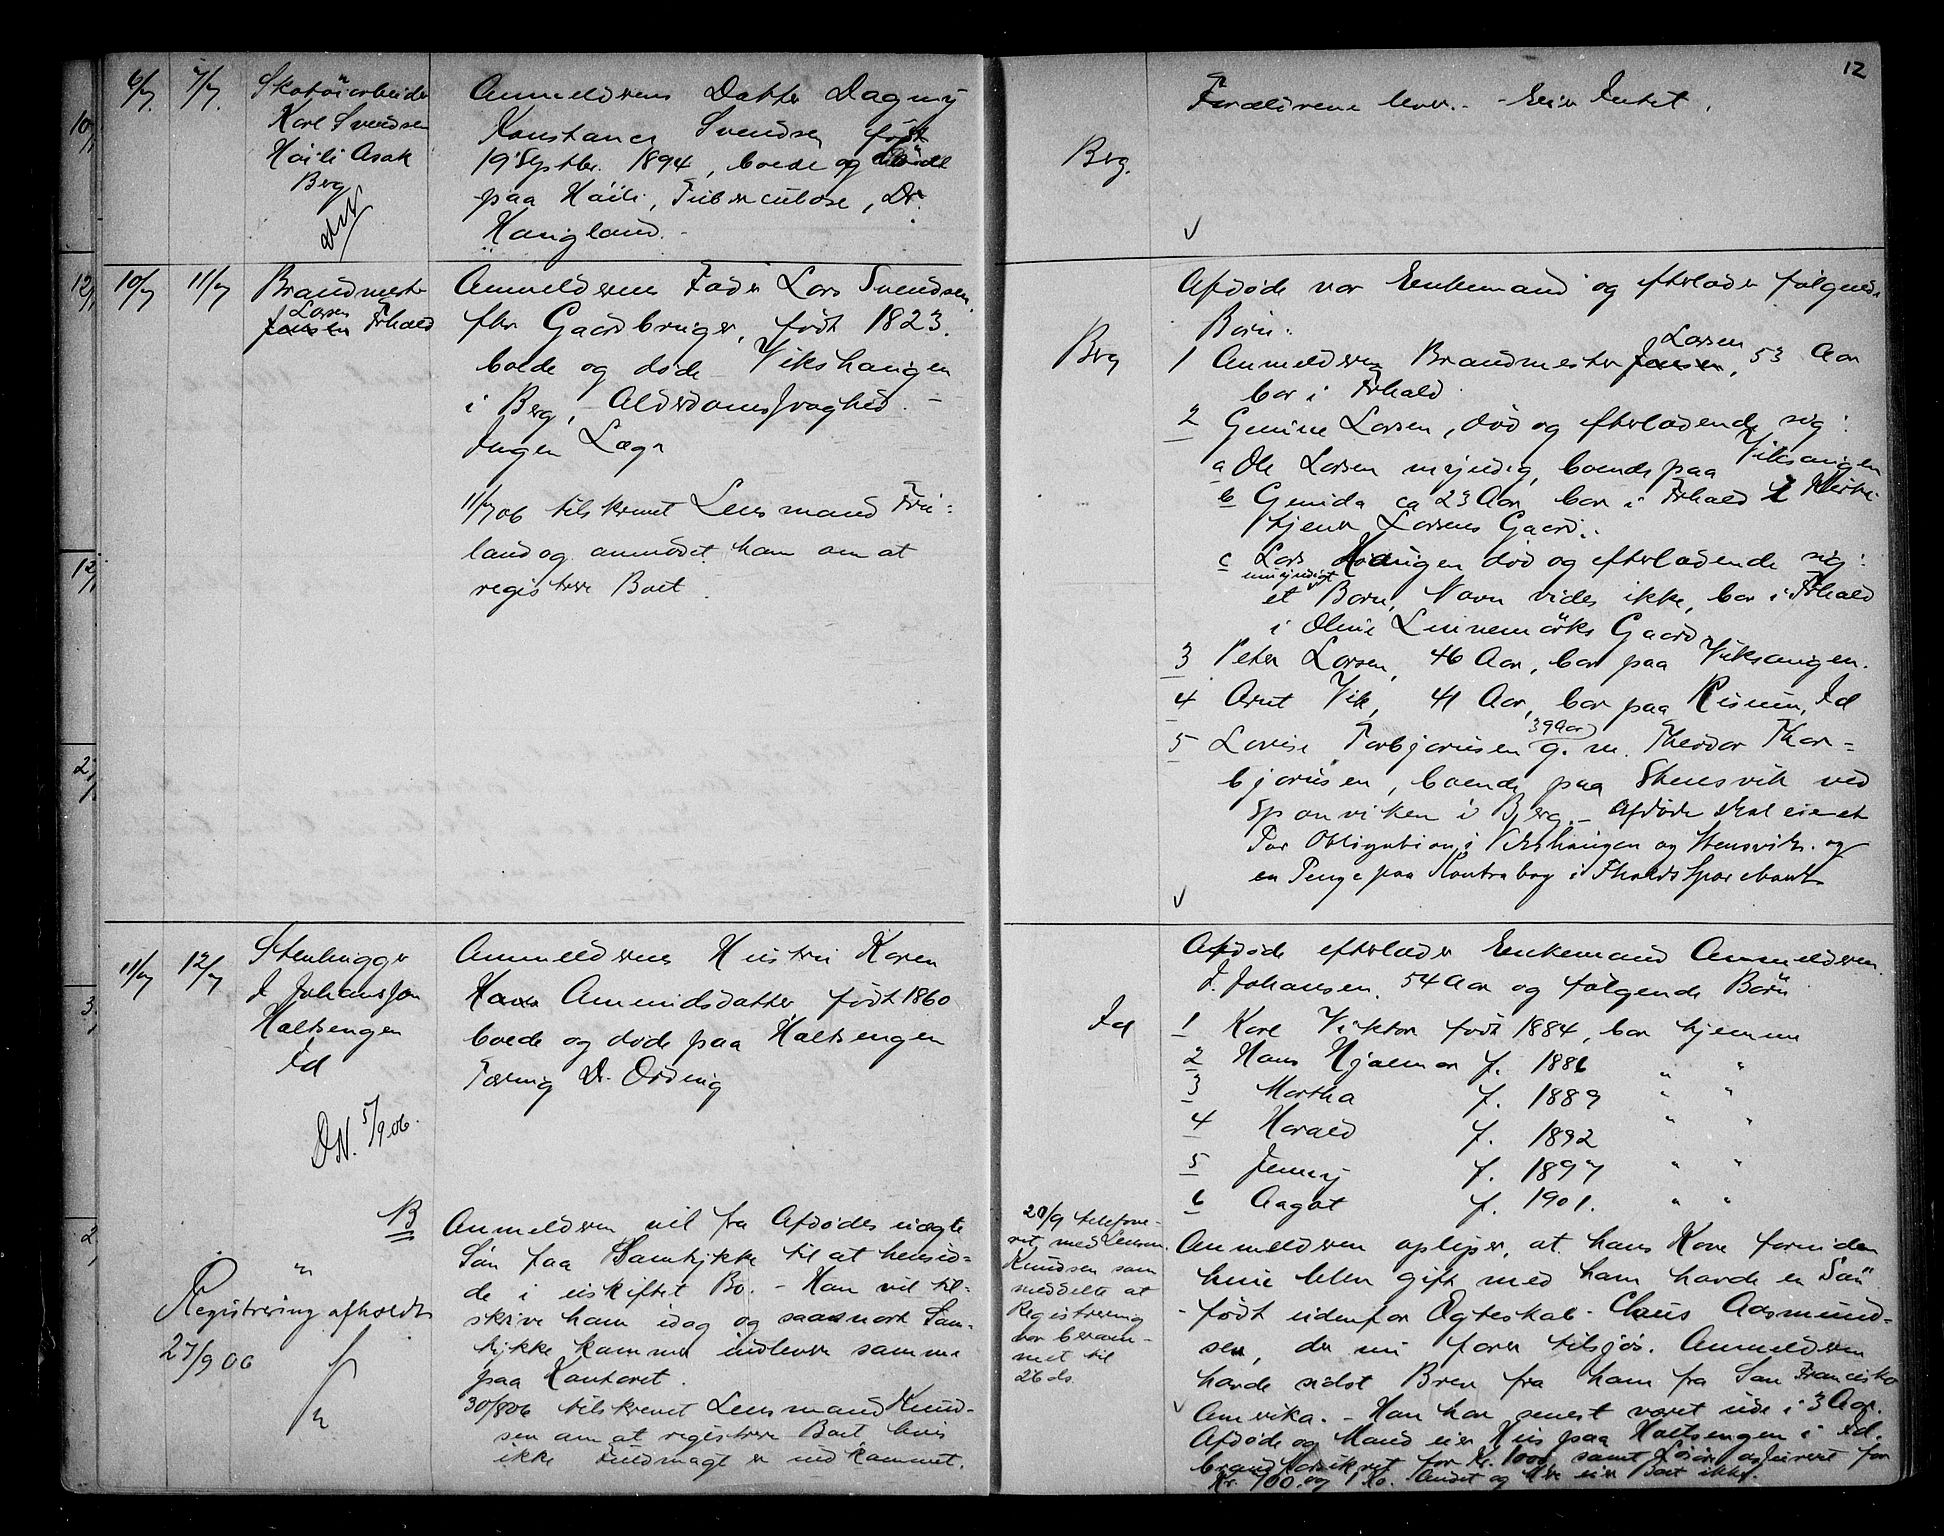 12
6/7 7/7 Skotöiarbeider
Karl Svendsen
Höili Asak
Berg
Anmelderens Datter Dagny
Konstance Svendsen født
19 Septbr. 1894, boede og döde
paa Höili, Tuberculose, Dr.
Haugland. -
Berg.
Forældrene lever. - Eier Intet.
10/7 11/7 Brandmester
Larsen
Jensen Frhald
Anmelderens Fader Lars Svendsen
fhv Gaardbruger, født 1823.
boede og døde Vikshaugen
i Berg, Alderdomssvaghed. -
Ingen Læge
11/7 06 tilskrevet Lensmand Fri=
land og anmodet ham om at
registrere Boet.
Berg
Afdøde var Enkemand og efterlader følgende
Børn:
Larsen
1 Anmelderen Brandmester Jensen, 53 Aar
bor i Frhald.
2 Gunine Larsen, død og efterladende sig:
a Ole Larsen myndig, boende paa Viksaugen
b Gunida ca 23 Aar, bor i Frhald i Kirke-
tjener Larsens Gaard.
c Lars Haugen død og efterladende sig:
umyndigt
et Barn, Navn vides ikke, bor i Frhald
i Oluie Linnemörks Gaard
3 Peter Larsen, 46 Aar, bor paa Viksaugen.
4 Arnt Vik, 41 Aar, bor paa Risum, Id
39 Aar
5 Lovise Torbjørnsen g. m. Theodor Thor=
bjørnsen, boende paa Stensvik ved
Sponviken i Bjerg. - Afdøde skal eie et
Par Obligation i Vikshaugen og Stensvik. og
en Penge paa Kontrabog i Fhalds Sparebank
11/7 12/7 Stenhugger
J Johanssen
Holtsengen
Id
DN. 5/9 06.
Anmelderens Hustru Karen
Hans Amundsdatter født 1860
boede og døde paa Holtsengen
Tæring Dr. Ording
Id
Afdøde efterlader Enkemand Anmelderen
J. Johansen, 54 Aar og følgende Børn
1 Karl Viktor født 1884, bor hjemme
2 Hans Hjalmar f. 1886 " "
3 Martha f. 1889 " "
4 Harald f. 1892 " "
5 Jenny f. 1897 " "
6 Aagot f. 1901. " "
NB
"
Registrering afholdt
27/9 06
Anmelderen vil fra Afdødes uægte
Søn faa Samtykke til at hensid-
de i uskiftet Bo. - Han vil til-
skrive ham idag og saasnart Sam-
tykke kommer indlevere samme
paa Kontoret.
30/8 06 tilskrevet Lensmand Knud-
sen om at registrere Boet hvis
ikke Fuldmagt er indkommet.
20/9 telefone-
ret med Lensm.
Knudsen som
meddelte at
Registrering
var beram-
met til
26 ds.
Anmelderen oplyser, at hans Kone forinden
hun blev gift med ham havde en Søn
- født udenfor Ægteskab - Claus Aasmund-
sen, der nu farer tilsjøs. Anmelderen
havde sidst Brev fra ham fra San Francisko
Amerika. - Han har senest været ude i 3 Aar.
Afdøde og Mand eier Hus paa Holtsengen i Id.
brandforsikret for Kr. 1000, samt Løsøre assureret for
Kr. 700. og 1 Ko. Andet og Mere eier Boet ikke.